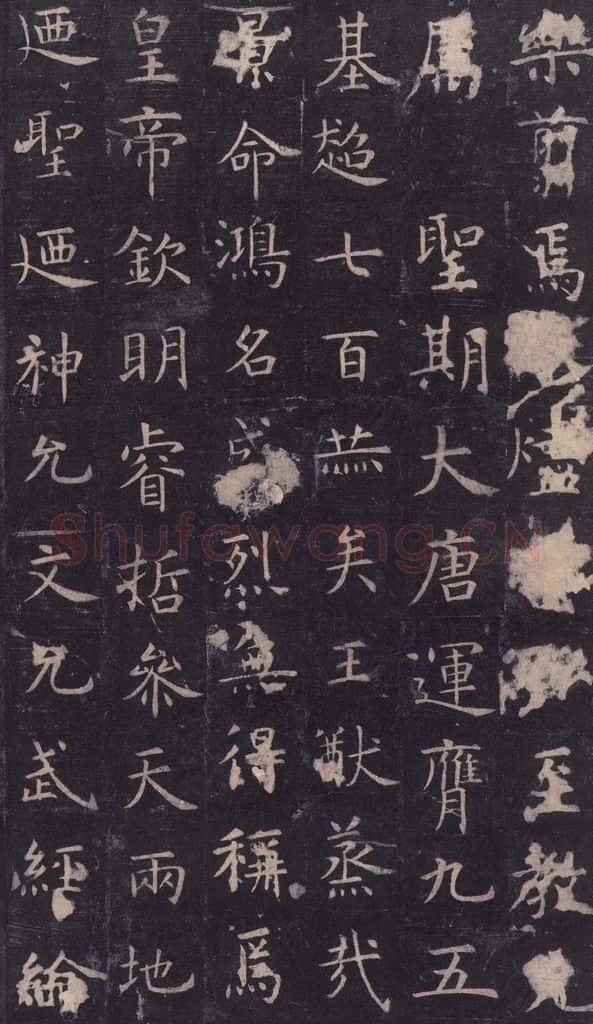 樂翦焉至教
屬聖期大唐運膺九五
基超七百赫矣王猷蒸哉
景命鴻名烈無得稱焉
皇帝欽明睿哲參天兩地
廼聖廼神允文允武經綸
Shufawang.CN